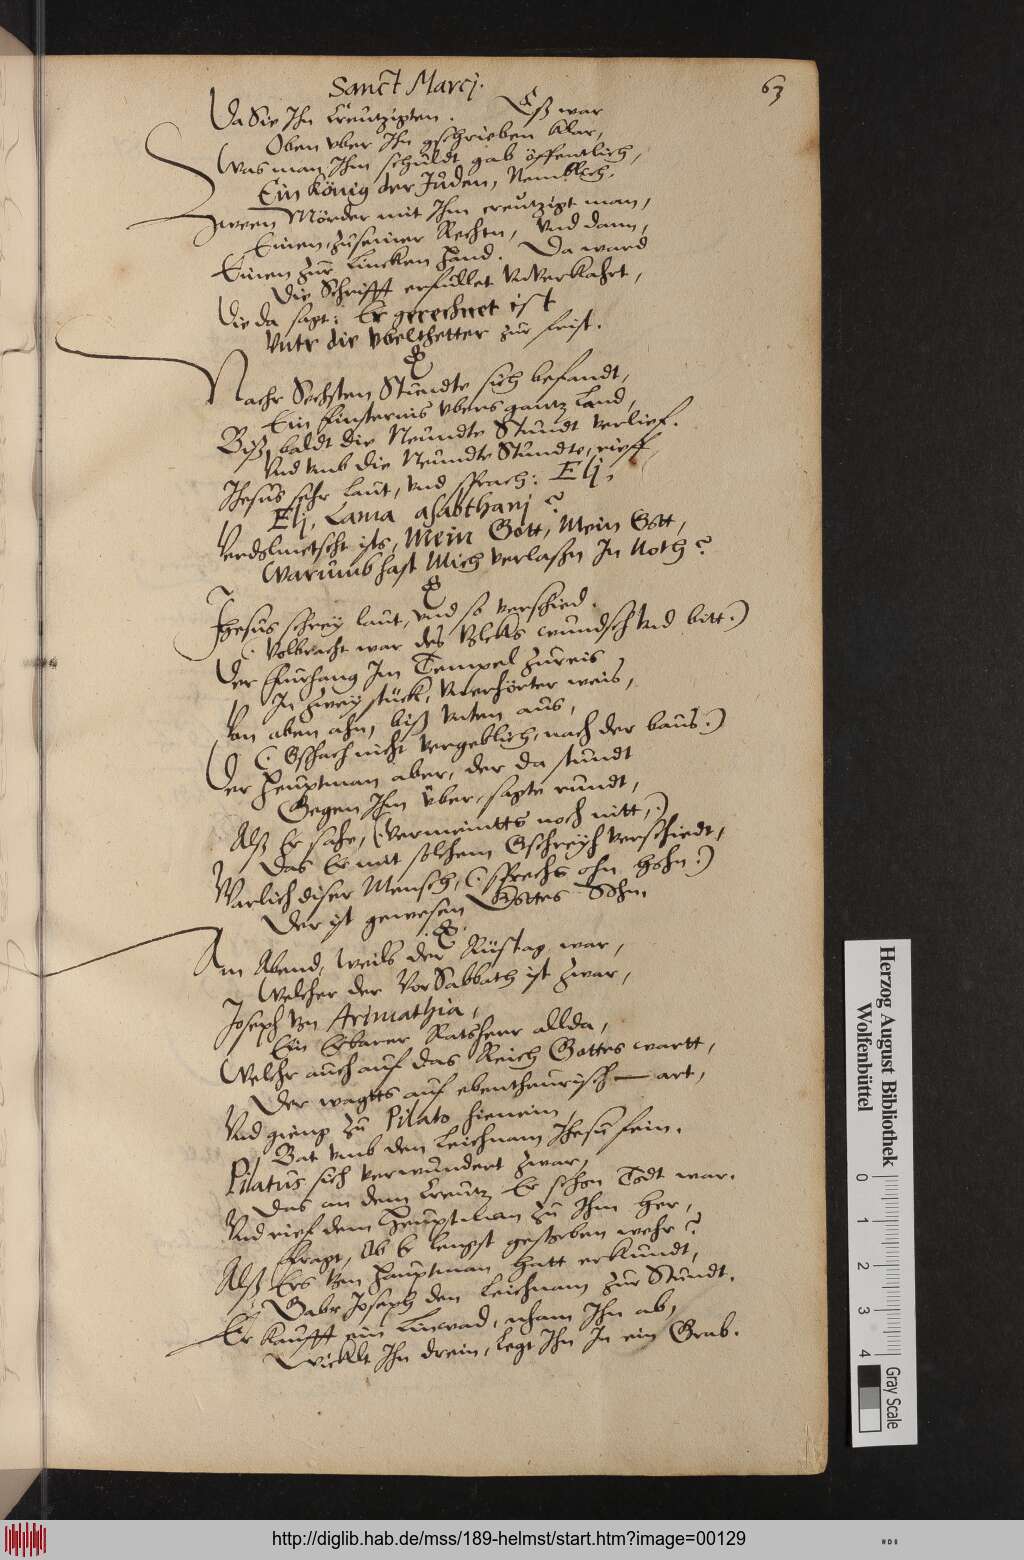 Sanct Marcj.
63
Da Sie Ihn Creutzigten. Eß war
Oben vber Ihn gschrieben klar,
Was man Ihm schuldt gab öffentlich,
Ein König der Juden, Nemblich.
Zween Mörder mit Ihm creutzigt man,
Einen, zu seiner Rechtn, Vnd dann,
Einen zur Lincken Hand. Da ward
Die Schrifft erfüllet
Die da sagt: Er gerechnet ist
Vntr die vbelthetter zur frist.
Nachr Sechsten Stundte sich befandt,
Ein Finsternis vbers gantz Land,
Biß, baldt die Neundte Stundt verlief.
Vnd vmb die Neundte Stundte, rieff
Jhesus sehr laut, vnd sprach: Elj,
Elj, Lama asabthanj?
Verdolmetscht ists, Mein Gott, Mein Gott,
Warumb hast Mich verlaßn In Noth?
Jhesus schrey laut, vnd so verschied.
(: Volbracht war des Volcks wundsch vnd bitt:)
Der Fürhang Im Tempel zureis
In zwey stück, vnerhörter weis,
Von oben ahn, biß vnten aus,
(: Gschach nicht vergeblich, nach der baus:)
Der Heuptman aber, der da stundt
Gegen Ihm vber, sagte rundt,
Alß Er sahe, (: vermeintts noch nitt,:)
Das Er mit solchem Gschreyh verschiedt,
Warlich diser Mensch, (: sprechs ohn Hohn:)
Der ist gewesen Gottes Sohn.
Am Abend, weils der Rüstag war,
Welcher der Vor Sabbath ist zwar,
Joseph von Arimathia,
Ein Erbarer Ratsherr allda,
Welchr auch auf das Reich Gottes wartt,
Der wagtts auf ebentheurisch art,
Vnd gieng zu Pilato hienein,
Bat vmb den Leichnam Jhesu fein.
Pilatus sich verwundert zwar,
Das an dem Creutz Er schon Todt war.
Vnd rief dem Heuptman zu Ihm her,
Fragt, Ob Er lengst gestorben wehr?
Alß Ers von Hauptman hatt erkundt,
Gabr Joseph den Leichnam zur Stundt.
Er kaufft ein Linwad, nham Ihn ab,
Wicklt Ihn drein, legt Ihn In ein Grab.
Herzog August Bibliothek
Wolfenbüttel
0 1 2 3 4
Gray Scale
http://diglib.hab.de/mss/189-helmst/start.htm?image=00129